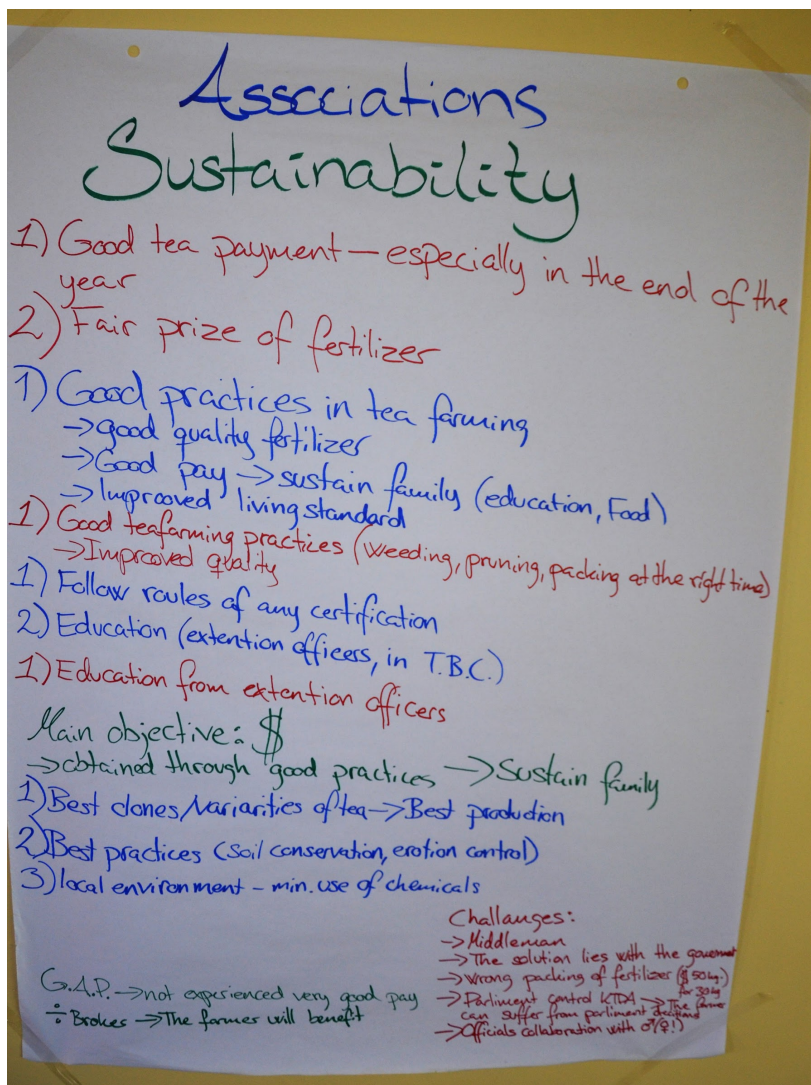 Associations
Sustainability
1) Good tea payment – especially in the end of the
year
2) Fair prize of fertilizer
1) Good practices in tea farming
→ good quality fertilizer
→ Good pay → sustain family (education, Food)
→ Improoved living standard
1) Good teafarming practices (weeding, pruning, packing at the right time)
→ Improoved quality
1) Follow roules of any certification
2) Education (extention officers, in T.B.C.)
1) Education from extention officers
Main objective: $
→ obtained through good practices → Sustain family
1) Best clones/variarities of tea → Best production
2) Best practices (soil conservation, erotion control)
3) local environment – min. use of chemicals
G.A.P. → not experienced very good pay
÷ Brokes → The farmer will benefit
Challanges:
→ Middleman
→ The solution lies with the government
→ Wrong packing of fertilizer (50kg.)
for 30kg
→ Parliment control KTDA → The farmer
can suffer from parliment decitions
→ Officials collaboration with ♂/♀!)